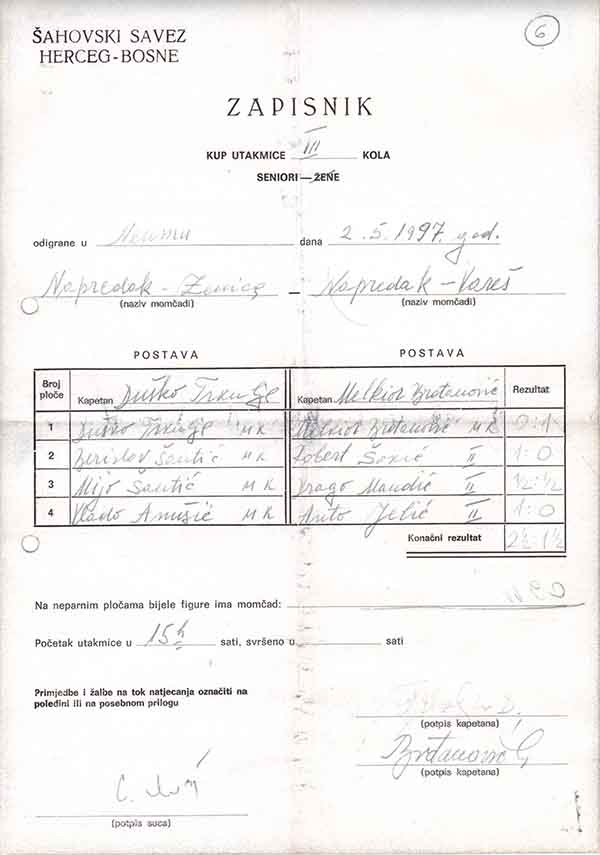 ŠAHOVSKI SAVEZ
HERCEG-BOSNE
6
ZAPISNIK
KUP UTAKMICE III KOLA
SENIORI—ŽENE
odigrane u Neumu dana 2.5.1997. god.
Napredak - Zenica — Napredak - Vareš
(naziv momčadi) (naziv momčadi)
POSTAVA POSTAVA
Broj ploče Kapetan Duško Kapetan Melkior Brtanović Rezultat
1 Duško MK Melkior Brtanović MK 0:1
2 Berislav Šantić MK Robert II 1:0
3 Mijo Šantić MK Drago Mandić II ½:½
4 Vlado MK Anto Jelić II 1:0
Konačni rezultat 2½:1½
Na neparnim pločama bijele figure ima momčad:
Početak utakmice u 15h sati, svršeno u sati
Primjedbe i žalbe na tok natjecanja označiti na
poleđini ili na posebnom prilogu
(potpis kapetana)
(potpis kapetana)
(potpis suca)